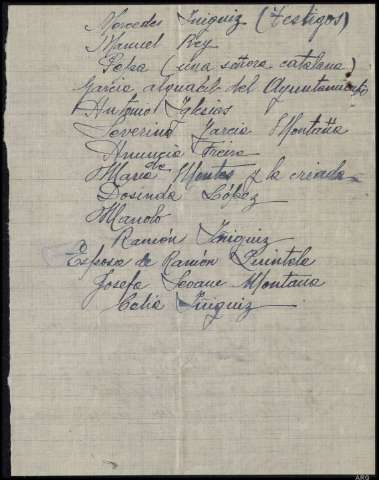 Mercedes Iñiguiz (testigos)
Manuel Rey
Pepa (una señora catalana)
García alguacil del Ayuntamiento
Antonio Iglesias
Severino García Montaña
Anuncia Freire
María de Montes y la criada
Dosinda López
Manolo
Ramón Iñiguiz
Esposa de Ramón Quintela
Josefa Seoane Montana
Celia Iniguiz
ARG